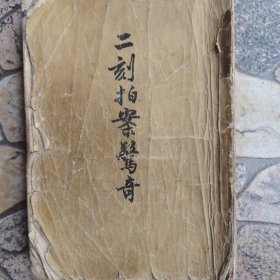 二刻拍案驚奇